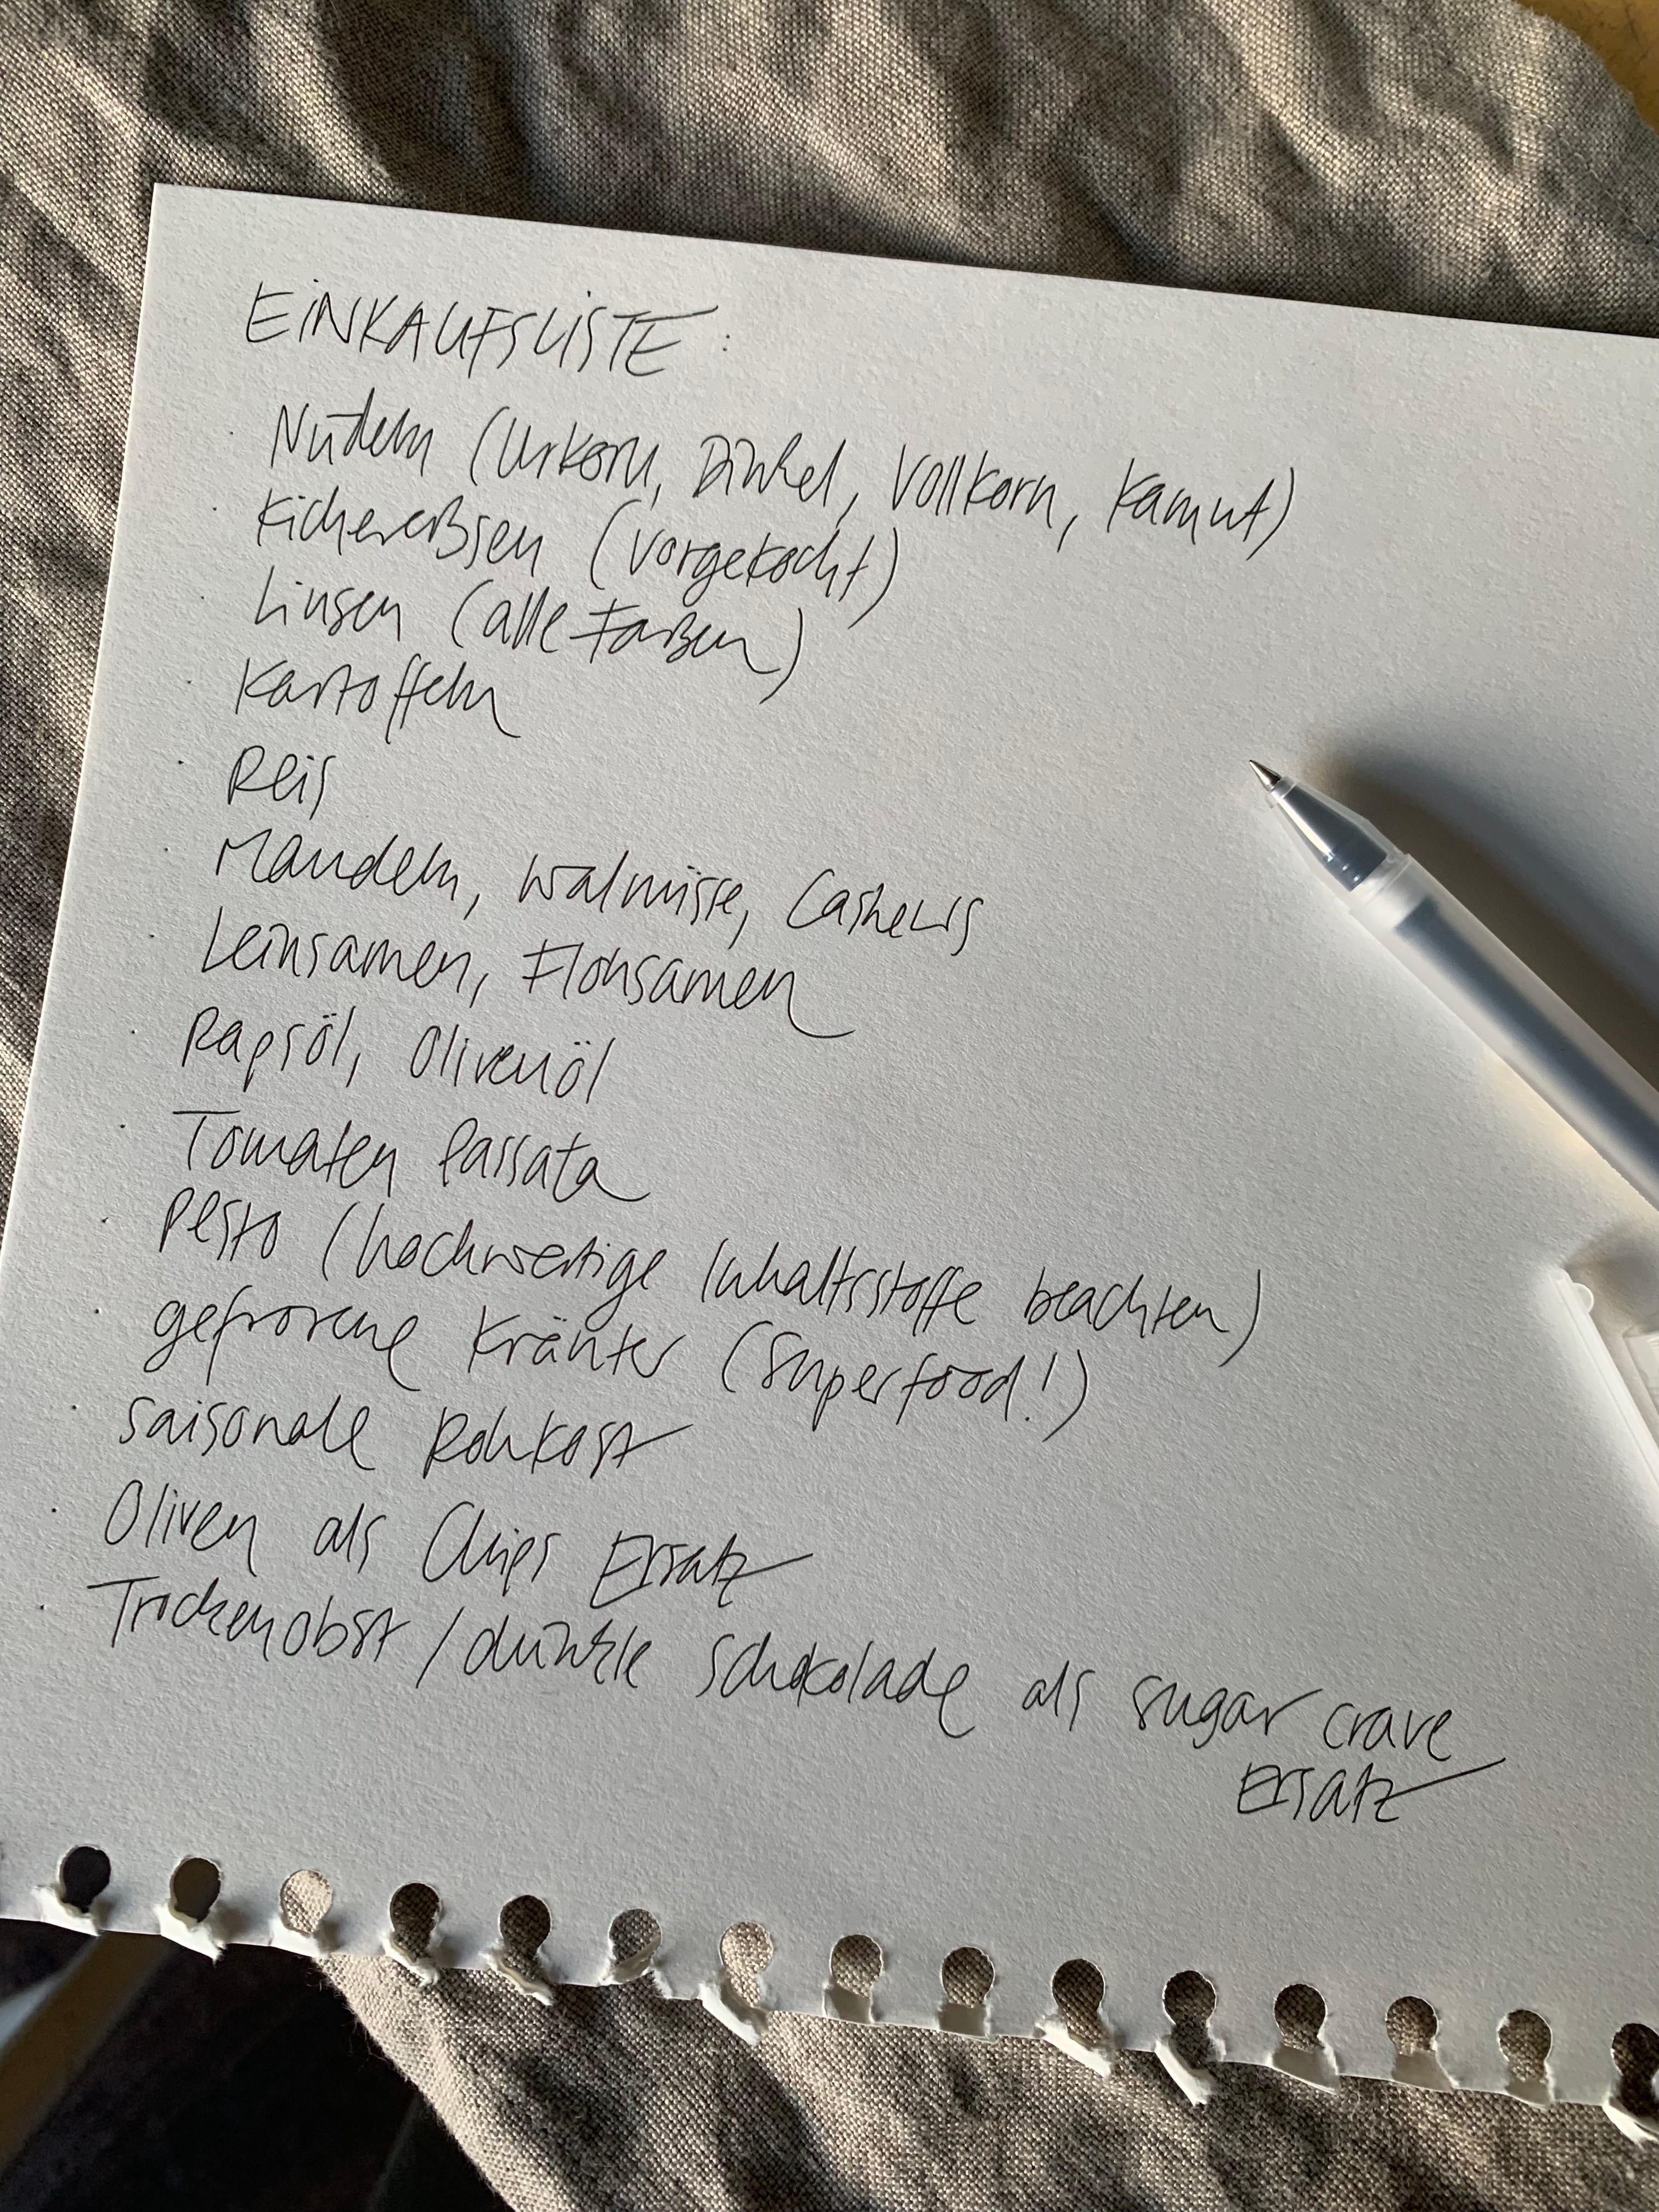 EINKAUFSLISTE:
· Nudeln (Urkorn, Dinkel, Vollkorn, Kamut)
· Kichererbsen (vorgekocht)
· Linsen (alle Farben)
· Kartoffeln
· Reis
· Mandeln, Walnüsse, Cashews
· Leinsamen, Flohsamen
· Rapsöl, Olivenöl
· Tomaten Passata
· Pesto (hochwertige Inhaltsstoffe beachten)
· gefrorene Kräuter (Superfood!)
· saisonale Rohkost
· Oliven als Chips Ersatz
· Trockenobst / dunkle Schokolade als sugar crave
Ersatz